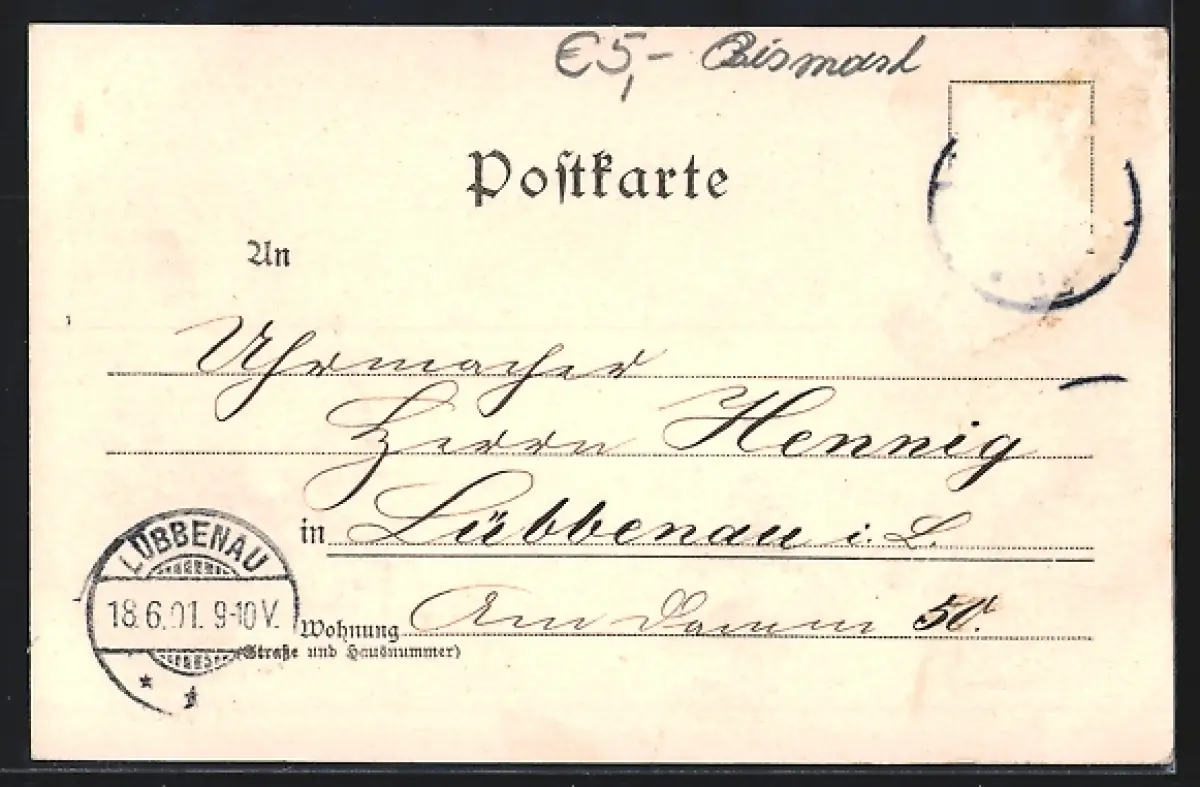 €5,- Bismark
Postkarte
An
Uhrmacher
Herrn Hennig
in Lübbenau i. L.
LÜBBENAU
18.6.01. 9-10V.
* *
Wohnung Am Damm 50.
(Straße und Hausnummer)